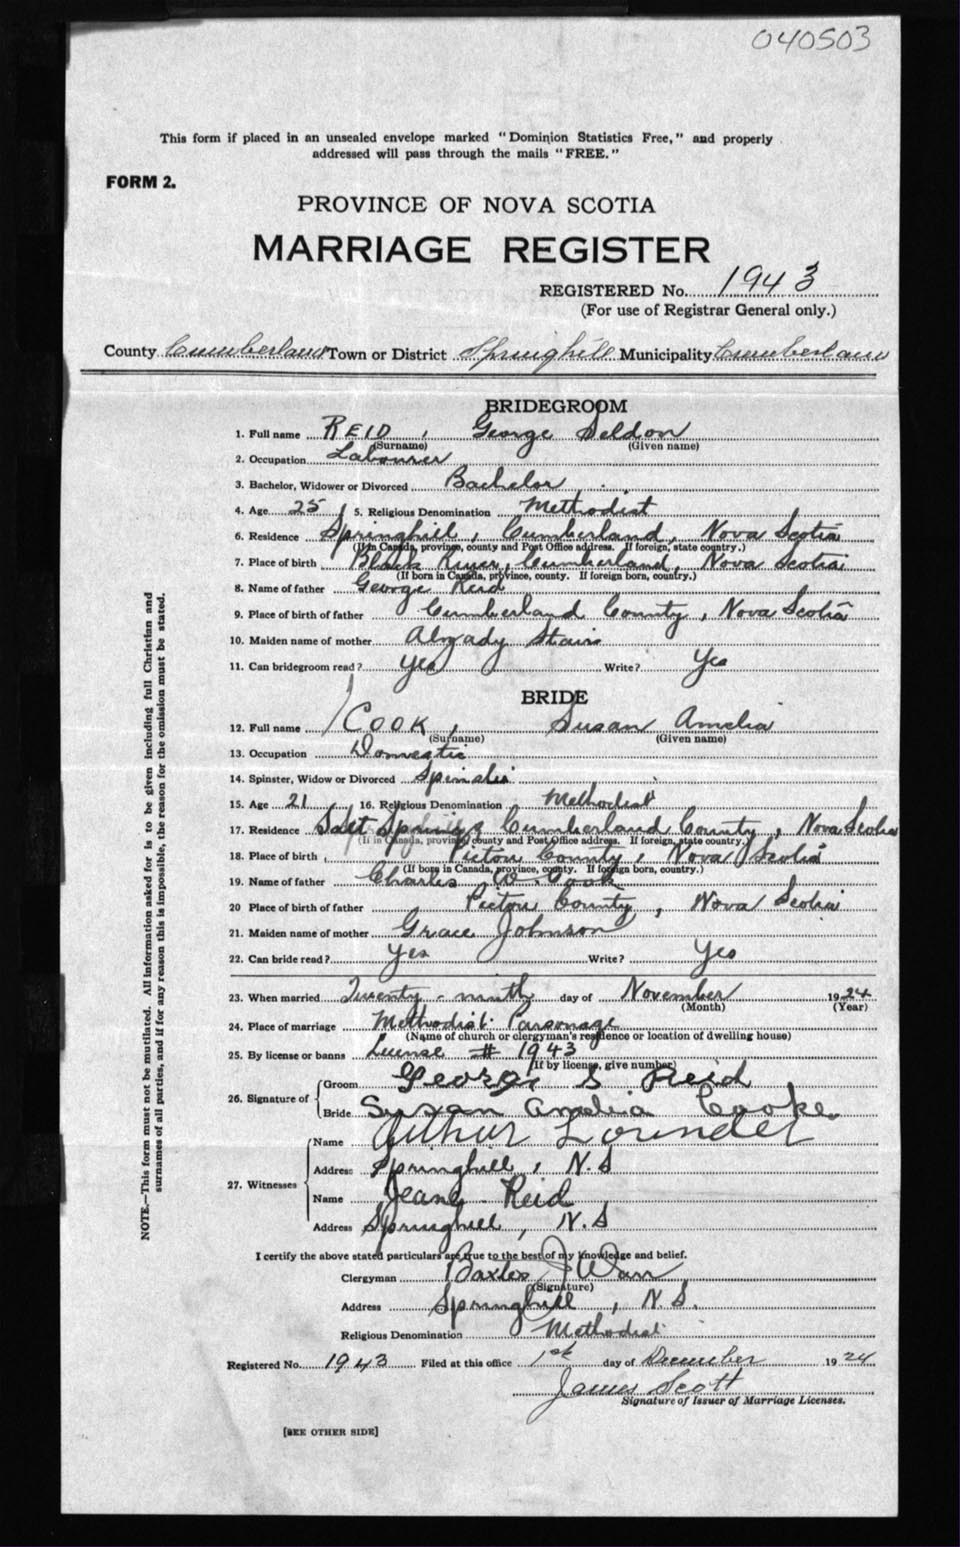 040503
This form if placed in an unsealed envelope marked "Dominion Statistics Free," and properly
addressed will pass through the mails "FREE."
FORM 2.
PROVINCE OF NOVA SCOTIA
MARRIAGE REGISTER
REGISTERED No. 1943
(For use of Registrar General only.)
County Cumberland Town or District Springhill Municipality Cumberland
BRIDEGROOM
1. Full name REID, George Seldon
(Surname) (Given name)
2. Occupation Labourer
3. Bachelor, Widower or Divorced Bachelor
4. Age 25 5. Religious Denomination Methodist
6. Residence Springhill, Cumberland, Nova Scotia
(If in Canada, province, county and Post Office address. If foreign, state country.)
7. Place of birth Black River, Cumberland, Nova Scotia
(If born in Canada, province, county. If foreign born, country.)
8. Name of father George Reid
9. Place of birth of father Cumberland County, Nova Scotia
10. Maiden name of mother
11. Can bridegroom read? Yes Write? Yes
BRIDE
12. Full name COOK, Susan Amelia
(Surname) (Given name)
13. Occupation Domestic
14. Spinster, Widow or Divorced
15. Age 21 16. Religious Denomination Methodist
17. Residence Salt Springs Cumberland County, Nova Scotia
(If in Canada, province, county and Post Office address. If foreign, state country.)
18. Place of birth Pictou County, Nova Scotia
(If born in Canada, province, county. If foreign born, country.)
19. Name of father Charles W. Cook
20 Place of birth of father Pictou County, Nova Scotia
21. Maiden name of mother Grace Johnson
22. Can bride read? Yes Write? Yes
23. When married Twenty-ninth day of November 1924
(Month) (Year)
24. Place of marriage Methodist Parsonage
(Name of church or clergyman's residence or location of dwelling house)
25. By license or banns License # 1943
(If by license, give number)
26. Signature of Groom George S Reid
Bride Susan Amelia Cooke
27. Witnesses
Name Arthur Lounder
Address Springhill, N.S
Name Jeane Reid
Address Springhill, N.S
I certify the above stated particulars are true to the best of my knowledge and belief.
Clergyman
(Signature)
Address Springhill, N.S.
Religious Denomination Methodist
Registered No. 1943 Filed at this office 1st day of December 1924
James Scott
Signature of Issuer of Marriage Licenses.
[SEE OTHER SIDE]
NOTE.—This form must not be mutilated. All information asked for is to be given including full Christian and
surnames of all parties, and if for any reason this is impossible, the reason for the omission must be stated.